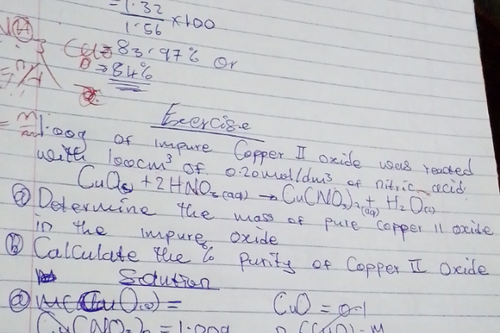 = 1.32
1.56 ×100
CuO = 83.97% Or
= 84%
Exercise
1.00g of impure Copper II oxide was reacted
with 100cm³ of 0.20mol/dm³ of nitric acid
CuO(s) + 2HNO₃(aq) → Cu(NO₃)₂(aq) + H₂O(l)
a) Determine the mass of pure copper II oxide
in the impure oxide
b) Calculate the % purity of Copper II Oxide
Solution
a) M(CuO(s)) = CuO = 0.1
Cu(NO₃)₂ = 1.00g